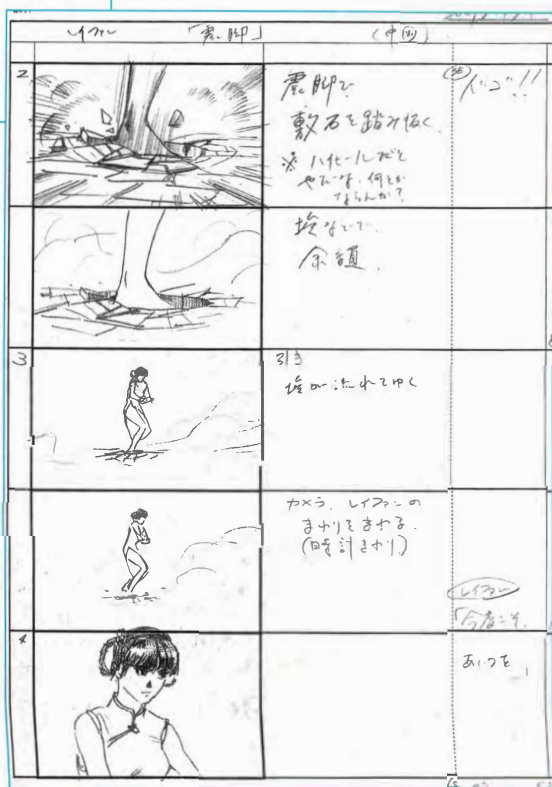 レイファン 「震脚」 (中国)
2
震脚で
敷石を踏み抜く
※ ハイヒールだと
やだな、何とか
ならんか?
(SE)
ドゴ!!
埃などで
余韻
3
引き
埃が流れてゆく
カメラ、レイファンの
まわりをまわる。
(時計まわり)
レイファン
「今度こそ、
4
あいつを、